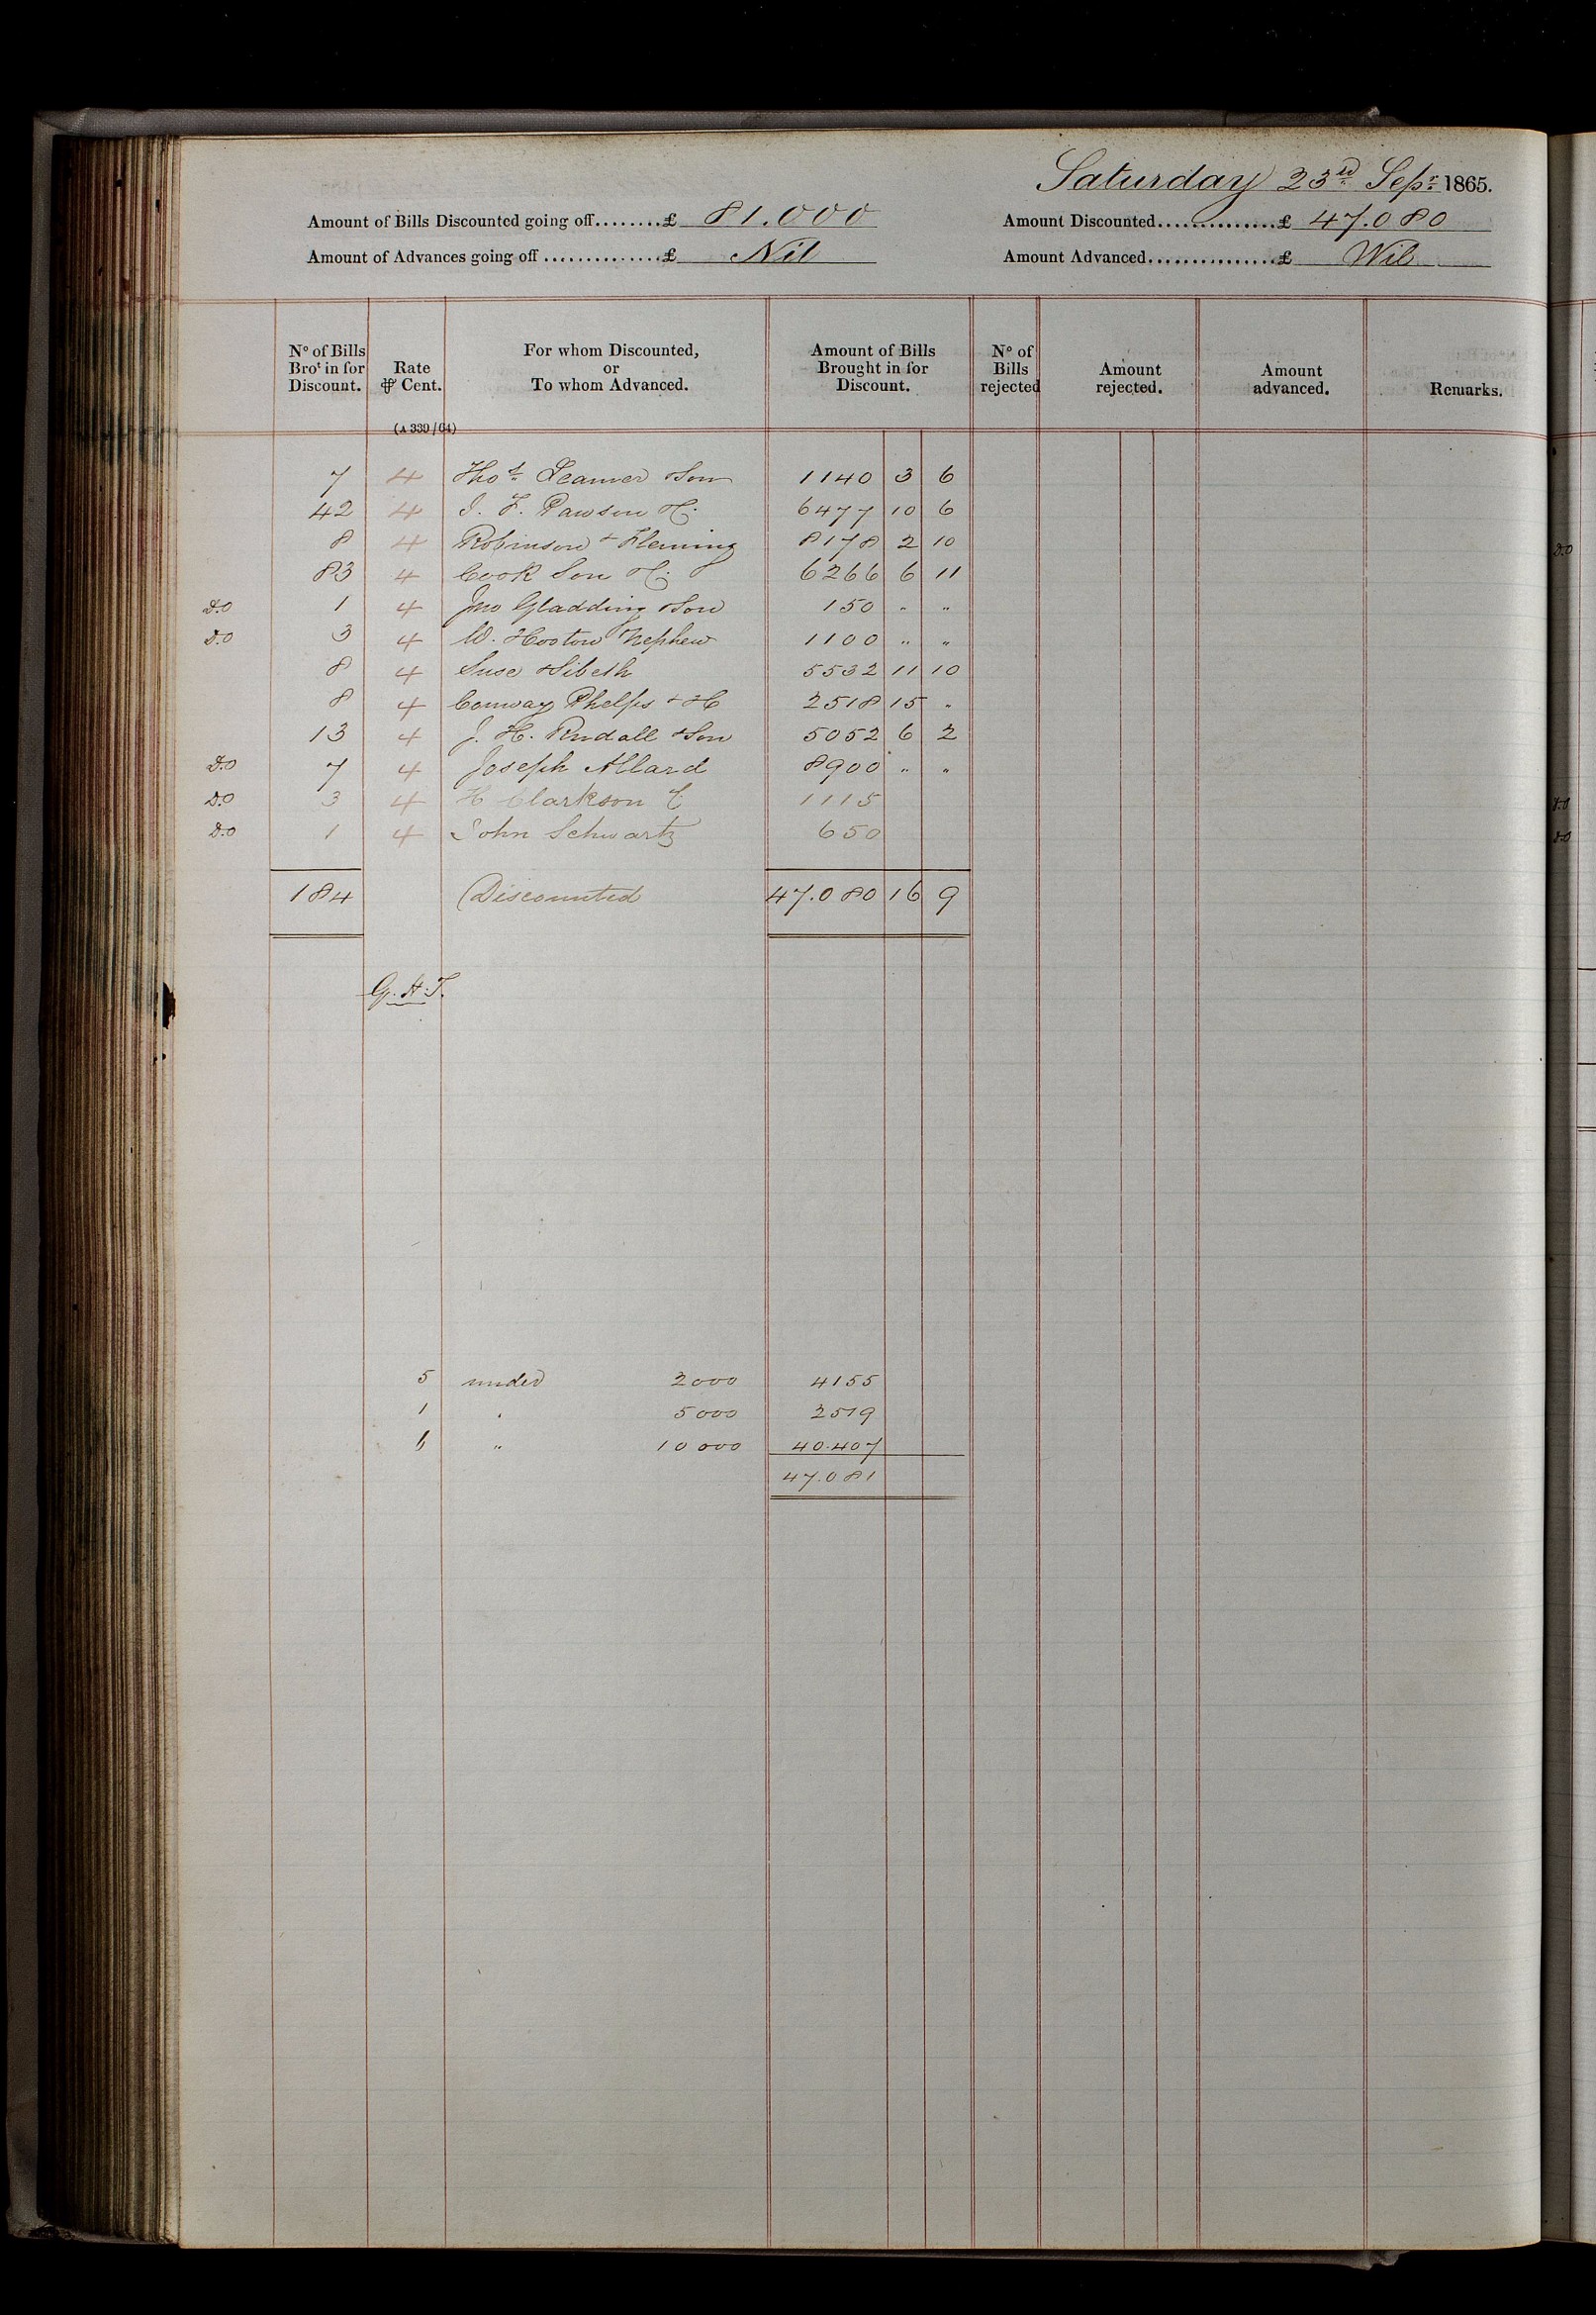 Saturday 23rd Sepr 1865.
Amount of Bills Discounted going off........£ 81.000
Amount Discounted...............£ 47.080
Amount of Advances going off...............£ Nil
Amount Advanced................£ Nil
No of Bills Brot in for Discount.
Rate ⅌ Cent.
For whom Discounted, or To whom Advanced.
Amount of Bills Brought in for Discount.
No of Bills rejected
Amount rejected.
Amount advanced.
Remarks.
(A 339/64)
7 4 Thos & Son 1140 3 6
42 4 J. F. Pawson & Co. 6477 10 6
8 4 Robinson & Fleming 8178 2 10
83 4 Cook Son & Co. 6266 6 11
D.O 1 4 Jno Gladding & Son 150 " "
D.O 3 4 W. Nephew 1100 " "
8 4 Suse & Sibeth 5532 11 10
8 4 Conway Phelps & Co 2518 15 "
13 4 J. H. & Son 5052 6 2
D.O 7 4 Joseph Allard 8900 " "
D.O 3 4 H Clarkson & Co 1115
D.O 1 4 John Schwartz 650
184 Discounted 47.080 16 9
G.H.T.
5 under 2000 4155
1 " 5000 2519
6 " 10000 40.407
47.081